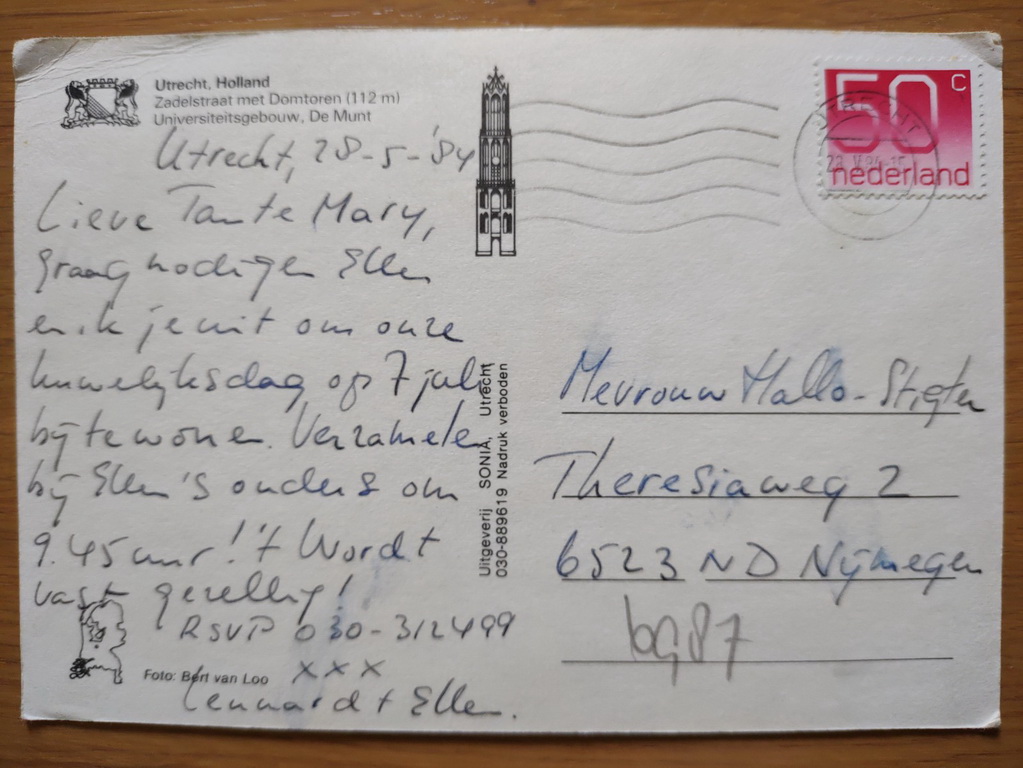 Utrecht, Holland
Zadelstraat met Domtoren (112 m)
Universiteitsgebouw, De Munt
Utrecht, 28-5-'84
Lieve Tante Mary,
graag nodigen Ellen
en ik je uit om onze
huwelijksdag op 7 juli
bij te wonen. Verzamelen
bij Ellen's ouders om
9.45 uur! 't Wordt
vast gezellig!
RSVP 030-312499
xxx
Lennard + Ellen.
Foto: Bert van Loo
Uitgeverij SONIA, Utrecht
030-889619 Nadruk verboden
50 c
nederland
Mevrouw Hallo-Stigter
Theresiaweg 2
6523 ND Nijmegen
bg87